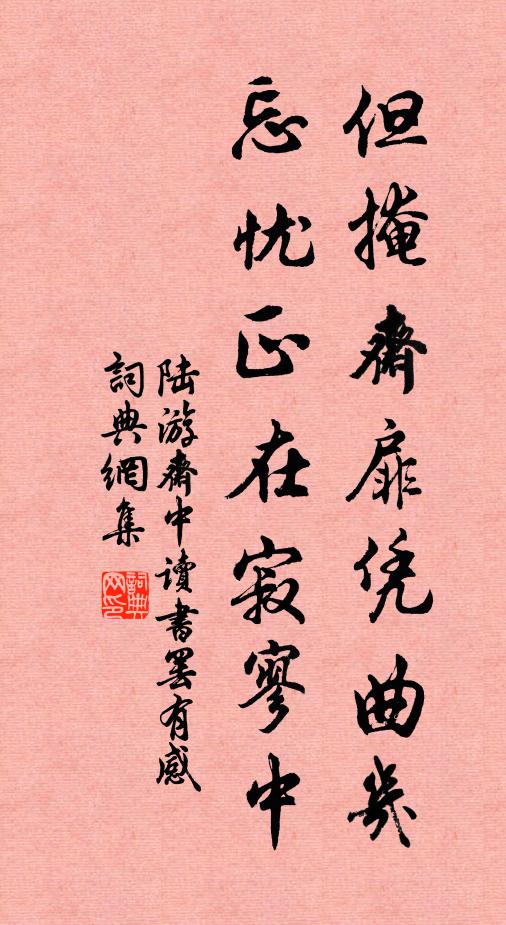 但掩齋扉凭曲幾
忘忧正在寂寥中
陆游齋中讀書罢有感
詞典網集
詞典网印